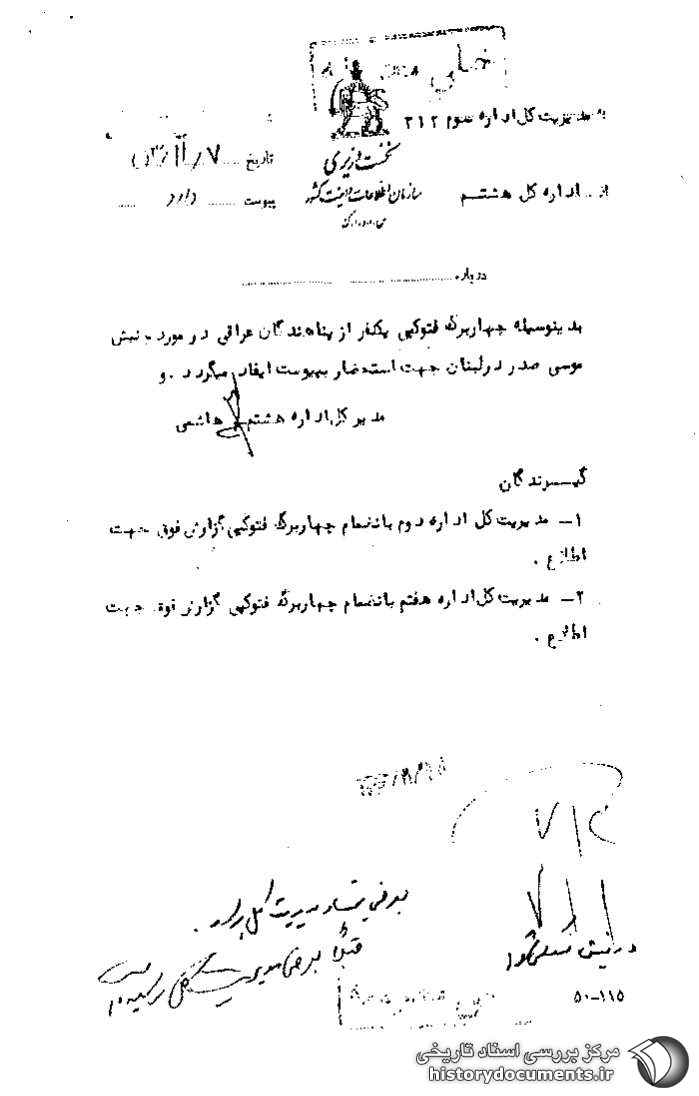 خیلی محرمانه
به مدیریت کل اداره سوم ۳۱۲
نخست وزیری
تاریخ
سازمان اطلاعات و امنیت کشور
از اداره کل هشتم
پیوست دارد
س.ا.و.ا.ک
درباره
بدینوسیله چهاربرگ فتوکپی یکنفر از پناهندگان عراقی در مورد جنبش
موسی صدر در لبنان جهت استحضار بپیوست ایفاد میگردد .و
مدیر کل اداره هشتم هاشمی
گیرندگان
۱- مدیریت کل اداره دوم بانضمام چهاربرگ فتوکپی گزارش فوق جهت
اطلاع .
۲- مدیریت کل اداره هفتم بانضمام چهاربرگ فتوکپی گزارش فوق جهت
اطلاع .
بعرض مدیریت کل
قبلا بعرض مدیریت کل رسیده
۵۰-۱۱۵
مرکز بررسی اسناد تاریخی
historydocuments.ir